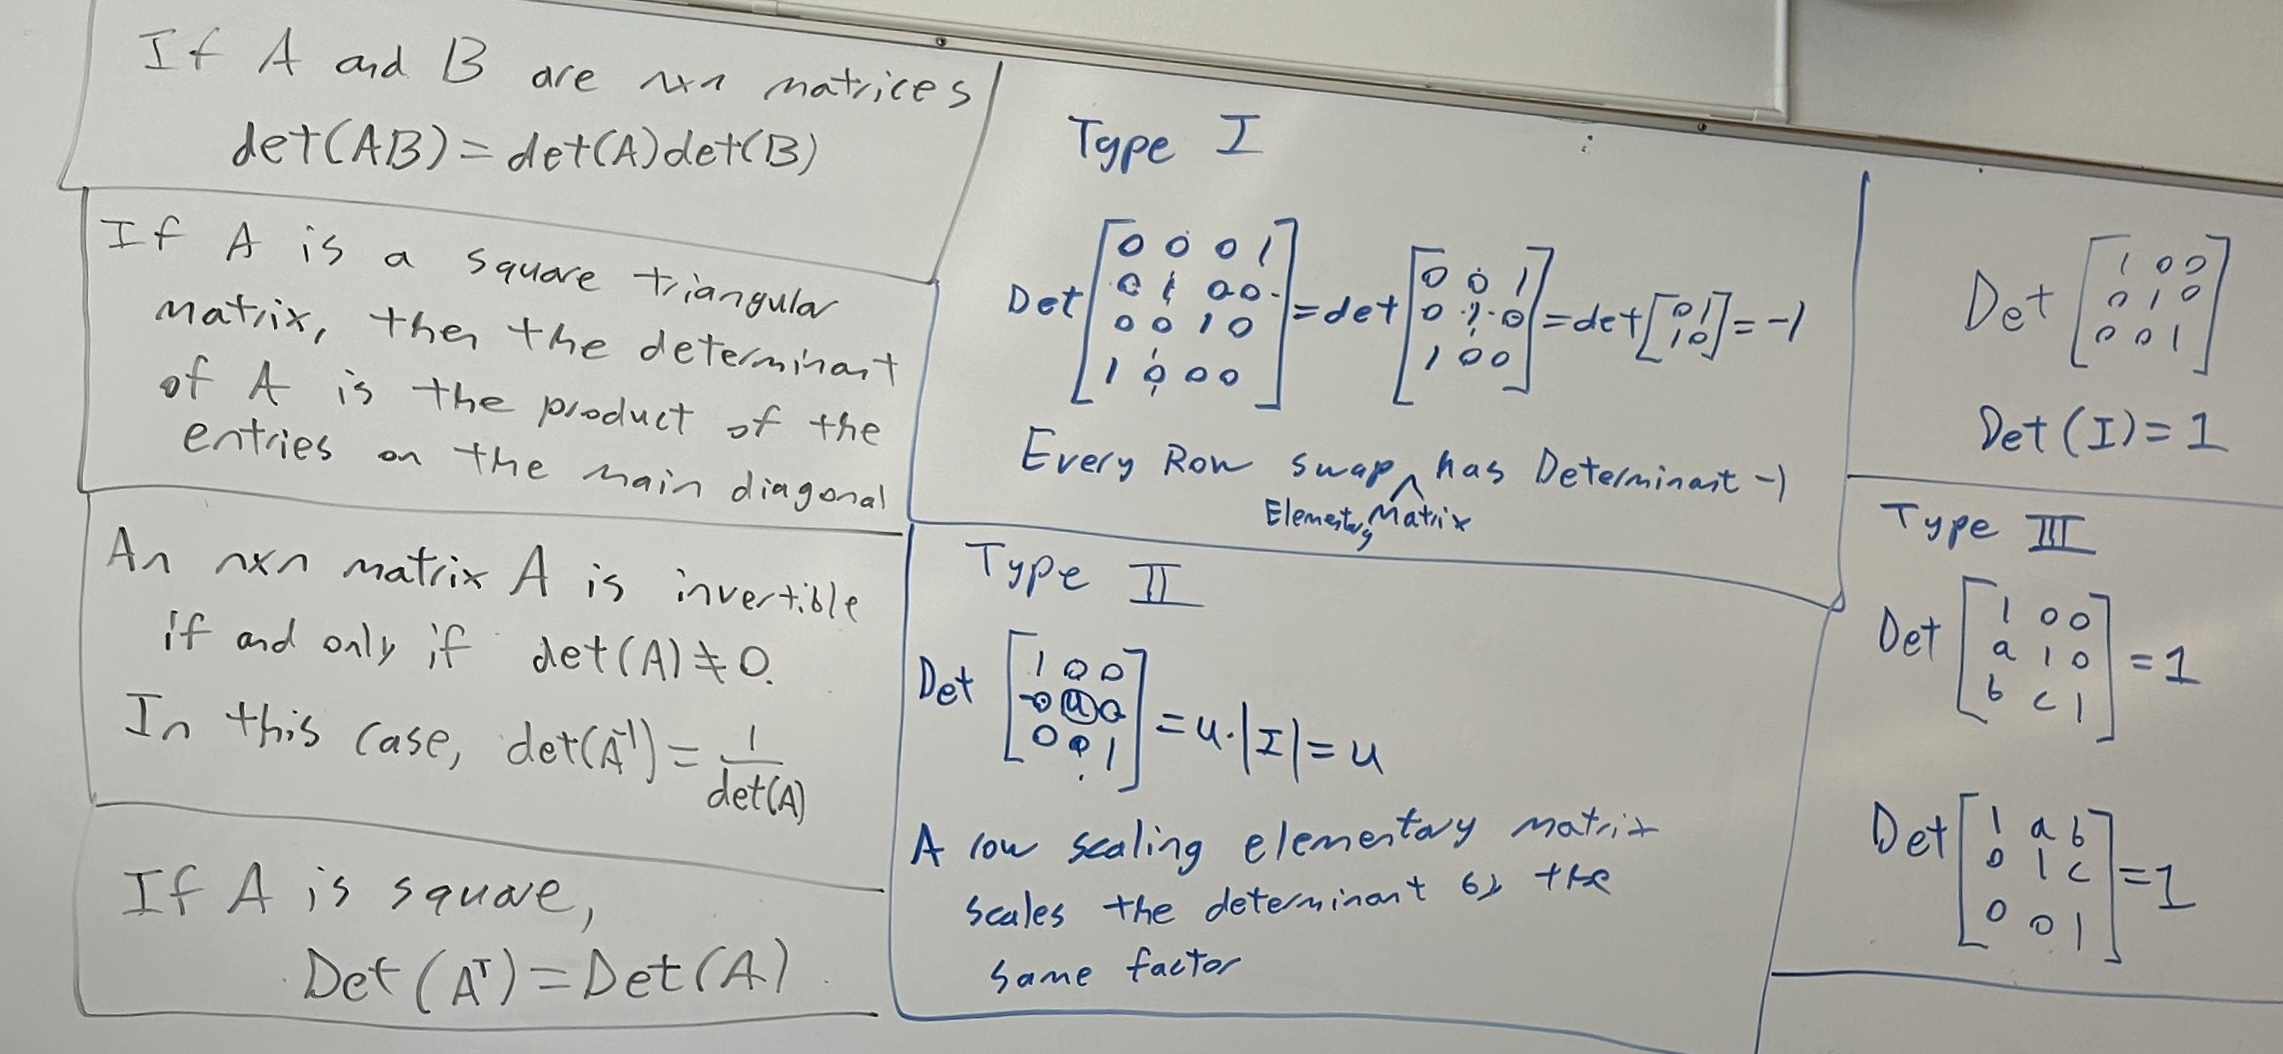 If A and B are nxn matrices
det(AB)=det(A)det(B)
If A is a square triangular
matrix, then the determinant
of A is the product of the
entries on the main diagonal
An nxn matrix A is invertible
if and only if det(A)≠0.
In this case, det(A⁻¹)=1/det(A)
If A is square,
Det(Aᵀ)=Det(A)
Type I
Det[0 0 0 1; 0 1 0 0; 0 0 1 0; 1 0 0 0]=det[0 0 1; 0 1 0; 1 0 0]=det[0 1; 1 0]=-1
Every Row swap ^ has Determinant -1
Elementary Matrix
Type II
Det[1 0 0; 0 u 0; 0 0 1]=u·|I|=u
A row scaling elementary matrix
scales the determinant by the
same factor
Det[1 0 0; 0 1 0; 0 0 1]
Det(I)=1
Type III
Det[1 0 0; a 1 0; b c 1]=1
Det[1 a b; 0 1 c; 0 0 1]=1